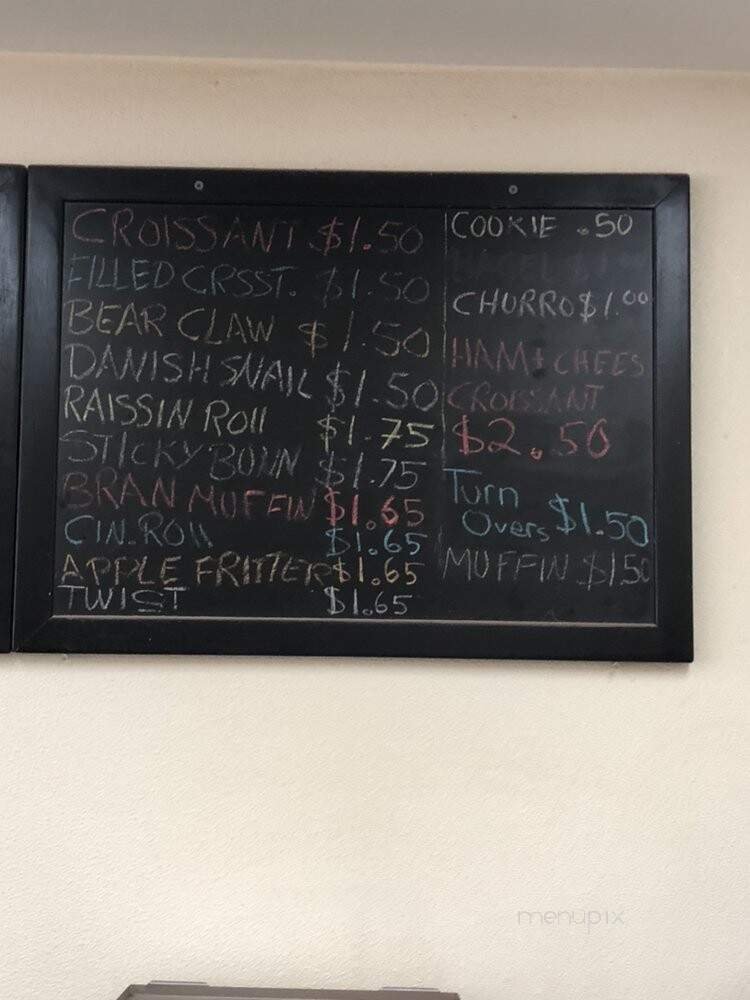 CROISSANT $1.50
FILLED CRSST. $1.50
BEAR CLAW $1.50
DANISH SNAIL $1.50
RAISSIN ROll $1.75
STICKY BOUN $1.75
BRAN MUFFIN $1.65
CIN-ROll $1.65
APPLE FRITTER $1.65
TWIST $1.65
COOKIE .50
CHURRO $1.00
HAM + CHEES
CROISSANT
$2.50
Turn
Overs $1.50
MUFFIN $1.50
menupix